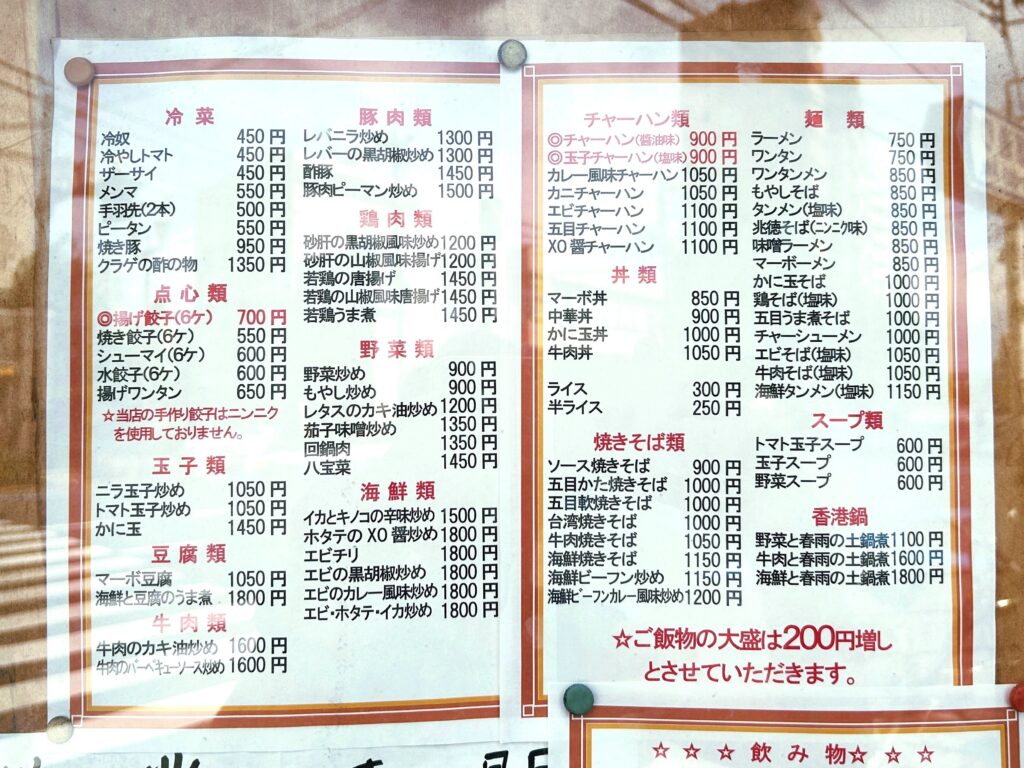 冷菜
冷奴 450円
冷やしトマト 450円
ザーサイ 450円
メンマ 550円
手羽先(2本) 500円
ピータン 550円
焼き豚 950円
クラゲの酢の物 1350円
点心類
◎揚げ餃子(6ケ) 700円
焼き餃子(6ケ) 550円
シューマイ(6ケ) 600円
水餃子(6ケ) 600円
揚げワンタン 650円
☆当店の手作り餃子はニンニク
を使用しておりません。
玉子類
ニラ玉子炒め 1050円
トマト玉子炒め 1050円
かに玉 1450円
豆腐類
マーボ豆腐 1050円
海鮮と豆腐のうま煮 1800円
牛肉類
牛肉のカキ油炒め 1600円
牛肉のバーベキューソース炒め 1600円
豚肉類
レバニラ炒め 1300円
レバーの黒胡椒炒め 1300円
酢豚 1450円
豚肉ピーマン炒め 1500円
鶏肉類
砂肝の黒胡椒風味炒め 1200円
砂肝の山椒風味揚げ 1200円
若鶏の唐揚げ 1450円
若鶏の山椒風味唐揚げ 1450円
若鶏うま煮 1450円
野菜類
野菜炒め 900円
もやし炒め 900円
レタスのカキ油炒め 1200円
茄子味噌炒め 1350円
回鍋肉 1350円
八宝菜 1450円
海鮮類
イカとキノコの辛味炒め 1500円
ホタテのXO醤炒め 1800円
エビチリ 1800円
エビの黒胡椒炒め 1800円
エビのカレー風味炒め 1800円
エビ・ホタテ・イカ炒め 1800円
チャーハン類
◎チャーハン(醤油味) 900円
◎玉子チャーハン(塩味) 900円
カレー風味チャーハン 1050円
カニチャーハン 1050円
エビチャーハン 1100円
五目チャーハン 1100円
XO醤チャーハン 1100円
丼類
マーボ丼 850円
中華丼 900円
かに玉丼 1000円
牛肉丼 1050円
ライス 300円
半ライス 250円
焼きそば類
ソース焼きそば 900円
五目かた焼きそば 1000円
五目軟焼きそば 1000円
台湾焼きそば 1000円
牛肉焼きそば 1050円
海鮮焼きそば 1150円
海鮮ビーフン炒め 1150円
海鮮ビーフンカレー風味炒め 1200円
麺類
ラーメン 750円
ワンタン 750円
ワンタンメン 850円
もやしそば 850円
タンメン(塩味) 850円
兆徳そば(ニンニク味) 850円
味噌ラーメン 850円
マーボーメン 850円
かに玉そば 1000円
鶏そば(塩味) 1000円
五目うま煮そば 1000円
チャーシューメン 1000円
エビそば(塩味) 1050円
牛肉そば(塩味) 1050円
海鮮タンメン(塩味) 1150円
スープ類
トマト玉子スープ 600円
玉子スープ 600円
野菜スープ 600円
香港鍋
野菜と春雨の土鍋煮 1100円
牛肉と春雨の土鍋煮 1600円
海鮮と春雨の土鍋煮 1800円
☆ご飯物の大盛は200円増し
とさせていただきます。
☆☆☆飲み物☆☆☆